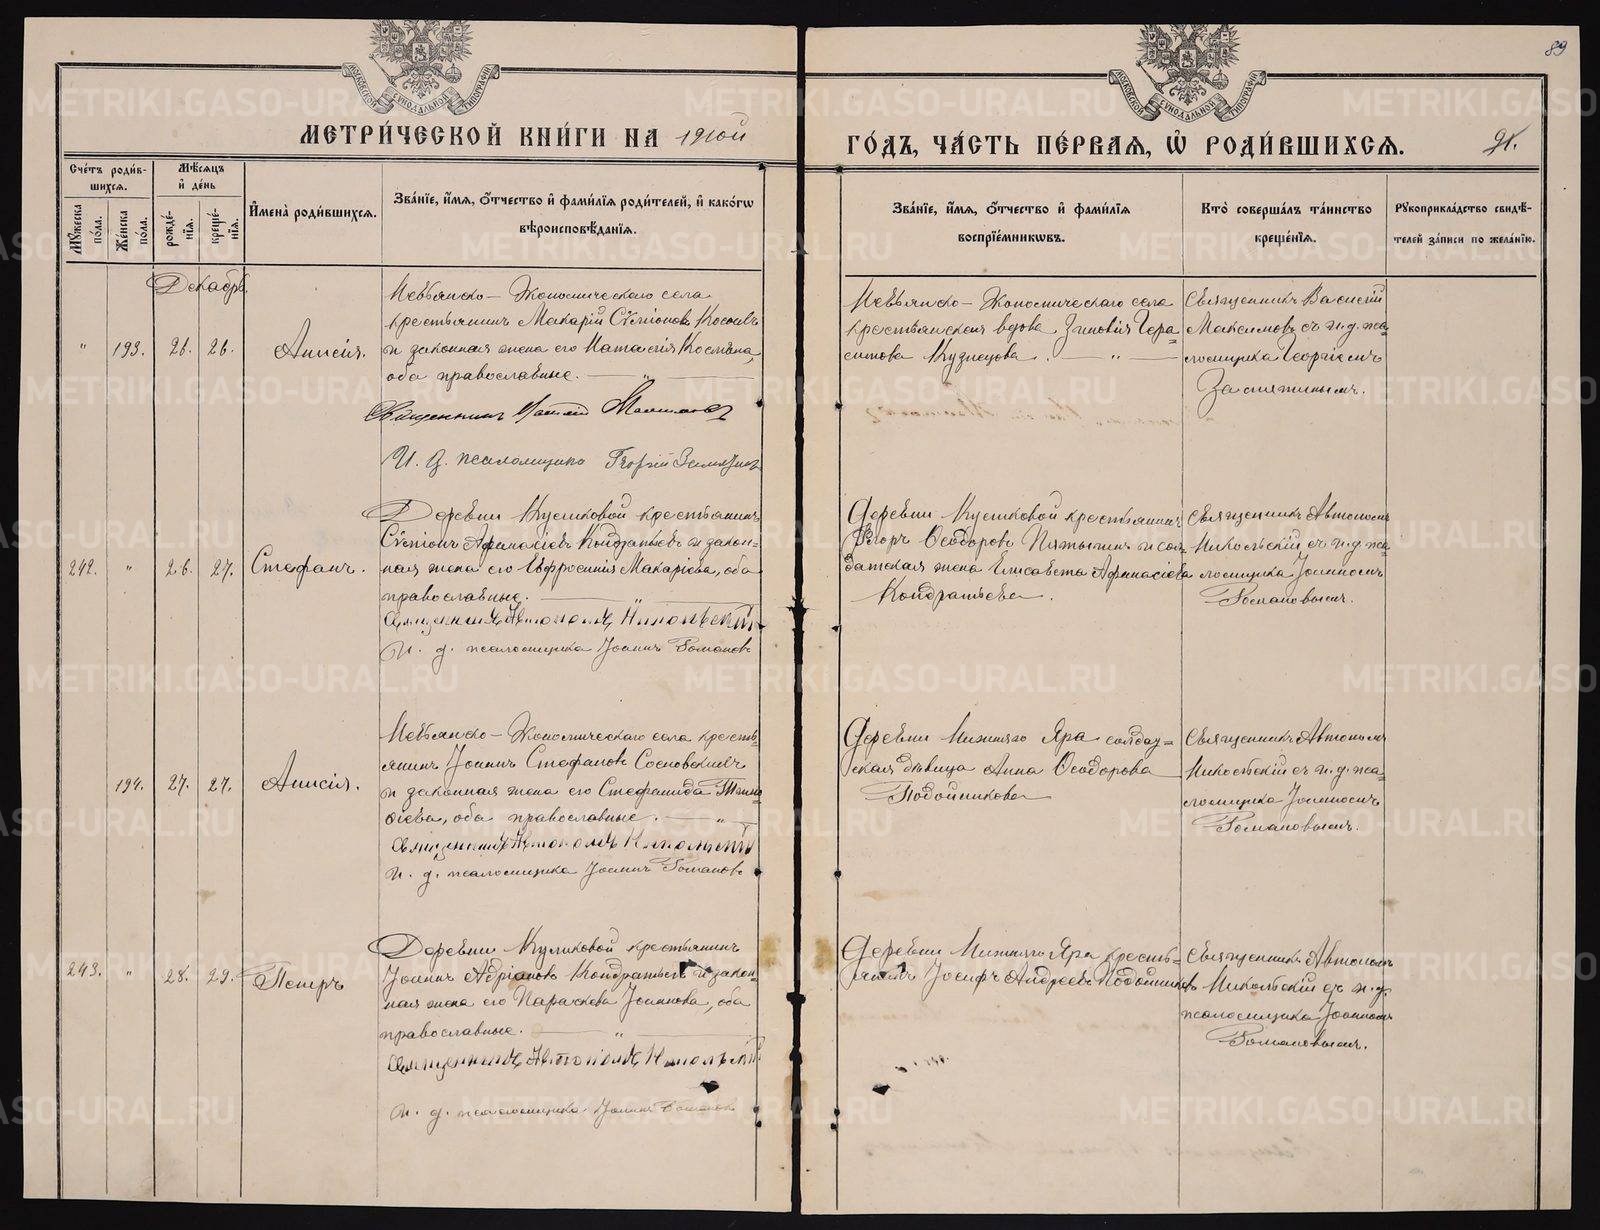 89
МОСКОВСКОЙ СѴНОДАЛЬНОЙ ТИПОГРАФІИ
МОСКОВСКОЙ СѴНОДАЛЬНОЙ ТИПОГРАФІИ
МЕТРИ́ЧЕСКОЙ КНИ́ГИ НА 1910й
ГО́ДЪ, ЧА́СТЬ ПЕ́РВАЯ, Ѡ РОДИ́ВШИХСЯ.
91.
Сче́тъ роди́в-
шихся.
Мѣ́сяцъ
и де́нь
Му́жеска по́ла.
Же́нска по́ла.
рожде́-
нія.
креще́-
нія.
Имена̀ роди́вшихся.
Зва́нїе, и́мя, о́тчество и фами́лїя роди́телей, и како́гѡ
вѣроисповѣ́данїя.
Зва́нїе, и́мя, о́тчество и фами́лїя
воспрїе́мникѡвъ.
Кто̀ соверша́лъ та́инство
креще́нїя.
Рукоприкла́дство свидѣ́-
телей за́писи по жела́нїю.
Декабрь.
" 193. 26. 26. Анисія.
Невьянско - Экономическаго села
крестьянинъ Макарій Сѵмеоновъ
и законная жена его Наталія Космина,
оба православные. — " —
Священникъ Максимовъ
И. д. псаломщика Георгій
Невьянско - Экономическаго села
крестьянская вдова Зиновія Гера-
симова Кузнецова. — " —
Священникъ Василій
Максимовъ съ и. д. пса-
ломщика Георгіемъ
242. " 26. 27. Стефанъ.
Деревни Куликовой крестьянинъ
Сѵмеонъ Афанасіевъ Кондратьевъ и закон-
ная жена его Евфросинія Макаріева, оба
православные. — " —
Священникъ Автономъ Никольскій
И. д. псаломщика Іоаннъ Романовъ
Деревни Куликовой крестьянинъ
Егоръ Ѳеодоровъ и сол-
датская жена Елисавета Афанасіева
Кондратьева.
Священникъ Автономъ
Никольскій съ и. д. пса-
ломщика Іоанномъ
Романовымъ.
194. 27. 27. Анисія.
Невьянско - Экономическаго села кресть-
янинъ Іоаннъ Стефановъ Сосновскихъ
и законная жена его Стефанида
оба православные. — " —
Священникъ Автономъ Никольскій
И. д. псаломщика Іоаннъ Романовъ
Деревни Нижняго Яра солдат-
ская дѣвица Анна Ѳеодорова
Подойникова
Священникъ Автономъ
Никольскій съ и. д. пса-
ломщика Іоанномъ
Романовымъ.
243. " 28. 29. Петръ
Деревни Куликовой крестьянинъ
Іоаннъ Адріановъ Кондратьевъ и закон-
ная жена его Параскева Іоаннова, оба
православные. — " —
Священникъ Автономъ Никольскій
И. д. псаломщика Іоаннъ Романовъ
Деревни Нижняго Яра кресть-
янинъ Іосифъ Андреевъ Подойниковъ
Священникъ Автономъ
Никольскій съ и. д.
псаломщика Іоанномъ
Романовымъ.
METRIKI.GASO-URAL.RU